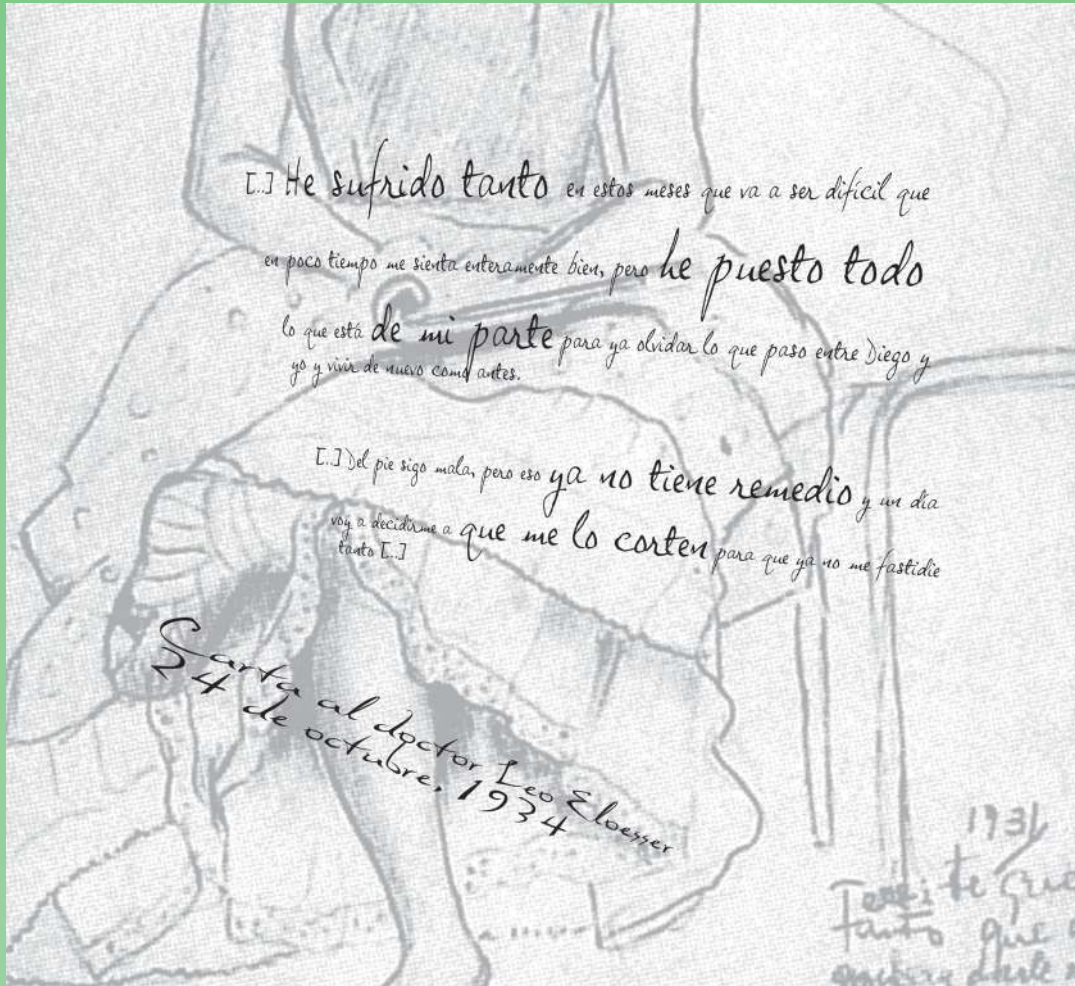 [..] He sufrido tanto en estos meses que va a ser difícil que
en poco tiempo me sienta enteramente bien, pero he puesto todo
lo que está de mi parte para ya olvidar lo que paso entre Diego y
yo y vivir de nuevo como antes.
[..] Del pie sigo mala, pero eso ya no tiene remedio y un día
voy a decidirme a que me lo corten para que ya no me fastidie
tanto [..]
Carta al doctor Leo Eloesser
24 de octubre, 1934
1931
te
tanto que